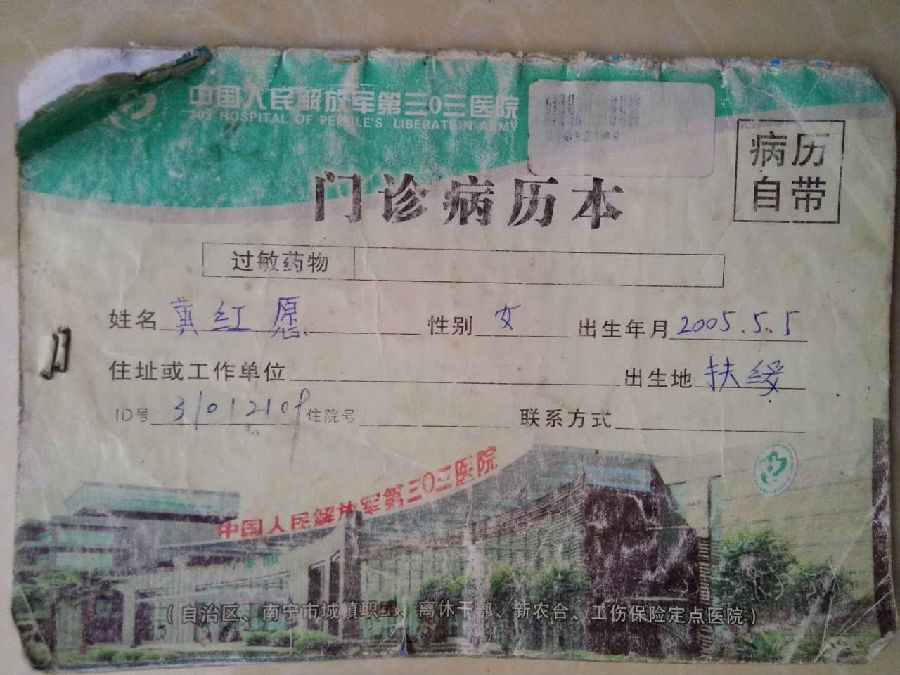 中国人民解放军第三〇三医院
303 HOSPITAL OF PEOPLE'S LIBERATION ARMY
病历
自带
门诊病历本
过敏药物
姓名 黄红愿 性别 女 出生年月 2005.5.5
住址或工作单位 出生地 扶绥
ID号 31012109 住院号 联系方式
中国人民解放军第三〇三医院
(自治区、南宁市城镇职工、离休干部、新农合、工伤保险定点医院)